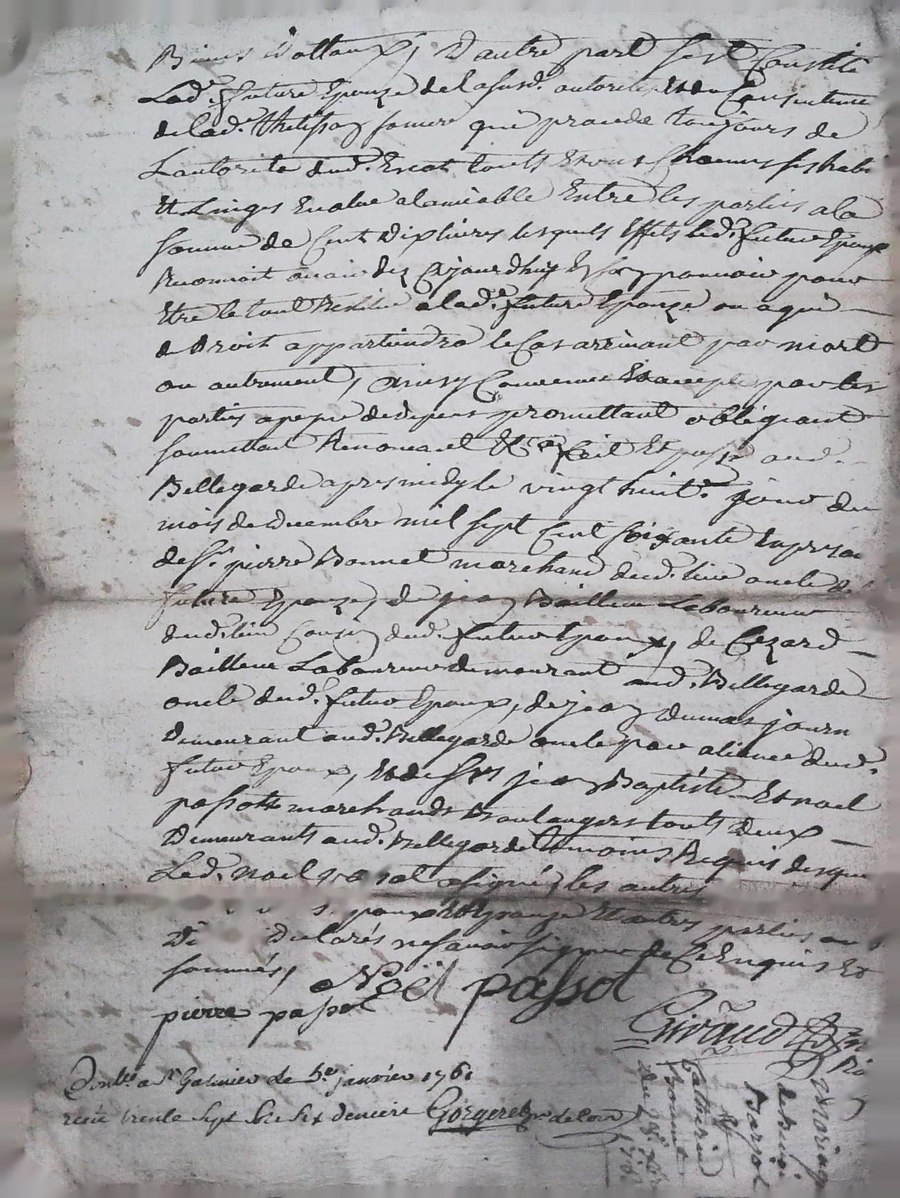 d'autre part s'est Constitué
Lad.e future Epouze de la susd. autorité Et du Consentement
de lad.e que procede toujours de
L'autorité dud. touts Et uns Chacuns ses habits
Et Linges Evalué a lamiable Entre les parties a la
somme de Cent Dix livres lesquels Effets led. futur Epoux
Reconnoit avoir dez Ce jourdhuy En son pouvoir pour
Etre le tout Restitué a lad.e future Epouze ou a qui
de Droit appartiendra le Cas arrivant par mort
ou autrement, ainsy Convenu Et accepté par les
parties a peyne de depens promettant obligeant
soumettant Renonceant &c.a fait Et passé aud.
Bellegarde apres midy le vingt huit.e jour du
mois de decembre mil sept Cent soixante En presence
de S.r pierre Bonnet marchand dud. lieu oncle de la
future Epouze, de jean Bailleux Laboureur
dud. lieu Cousin dud. futur Epoux, de Cezard
Bailleux Laboureur demeurant aud. Bellegarde
oncle dud. futur Epoux, de jean Dumas journ
demeurant aud. Bellegarde oncle par aliance dud.
futur Epoux, Et de S.rs jean Baptiste Et noel
passot marchands Boulangers touts deux
Demeurants aud. Bellegarde temoins Requis desque
Led. noel passot a signé, les autres
Epoux Et Epouze Et autres parties
Declarés ne savoir signer de Ce Enquis Et
sommés,
Noël passot
pierre passot
Giraud
Cont.é a S.t Galmier le 5.e janvier 1761
reçu trente sept sols six deniers Gorgeret
mariage
Catherine
Bonnet